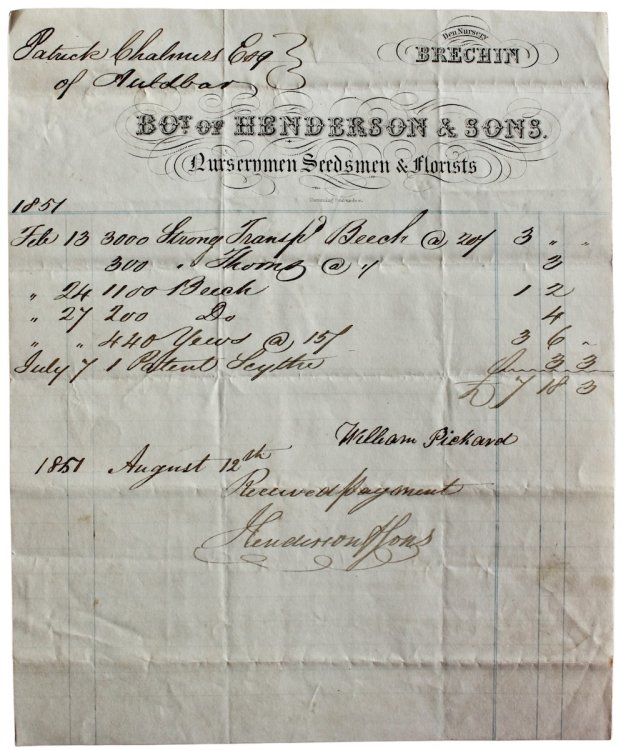 Patrick Chalmers Esq
of Auldbar
Den Nursery
BRECHIN
BOT. OF HENDERSON & SONS.
Nurserymen Seedsmen & Florists
1851
Feb 13 3000 Strong Transpd Beech @ 20/ 3 " "
300 " Thorns @ 1/ 3
" 24 1100 Beech 1 2
" 27 200 Do 4
" " 440 Yews @ 15/ 3 6 "
July 7 1 Patent Scythe 3 3
£ 7 18 3
William Pickard
1851 August 12th
Received payment
Henderson & Sons